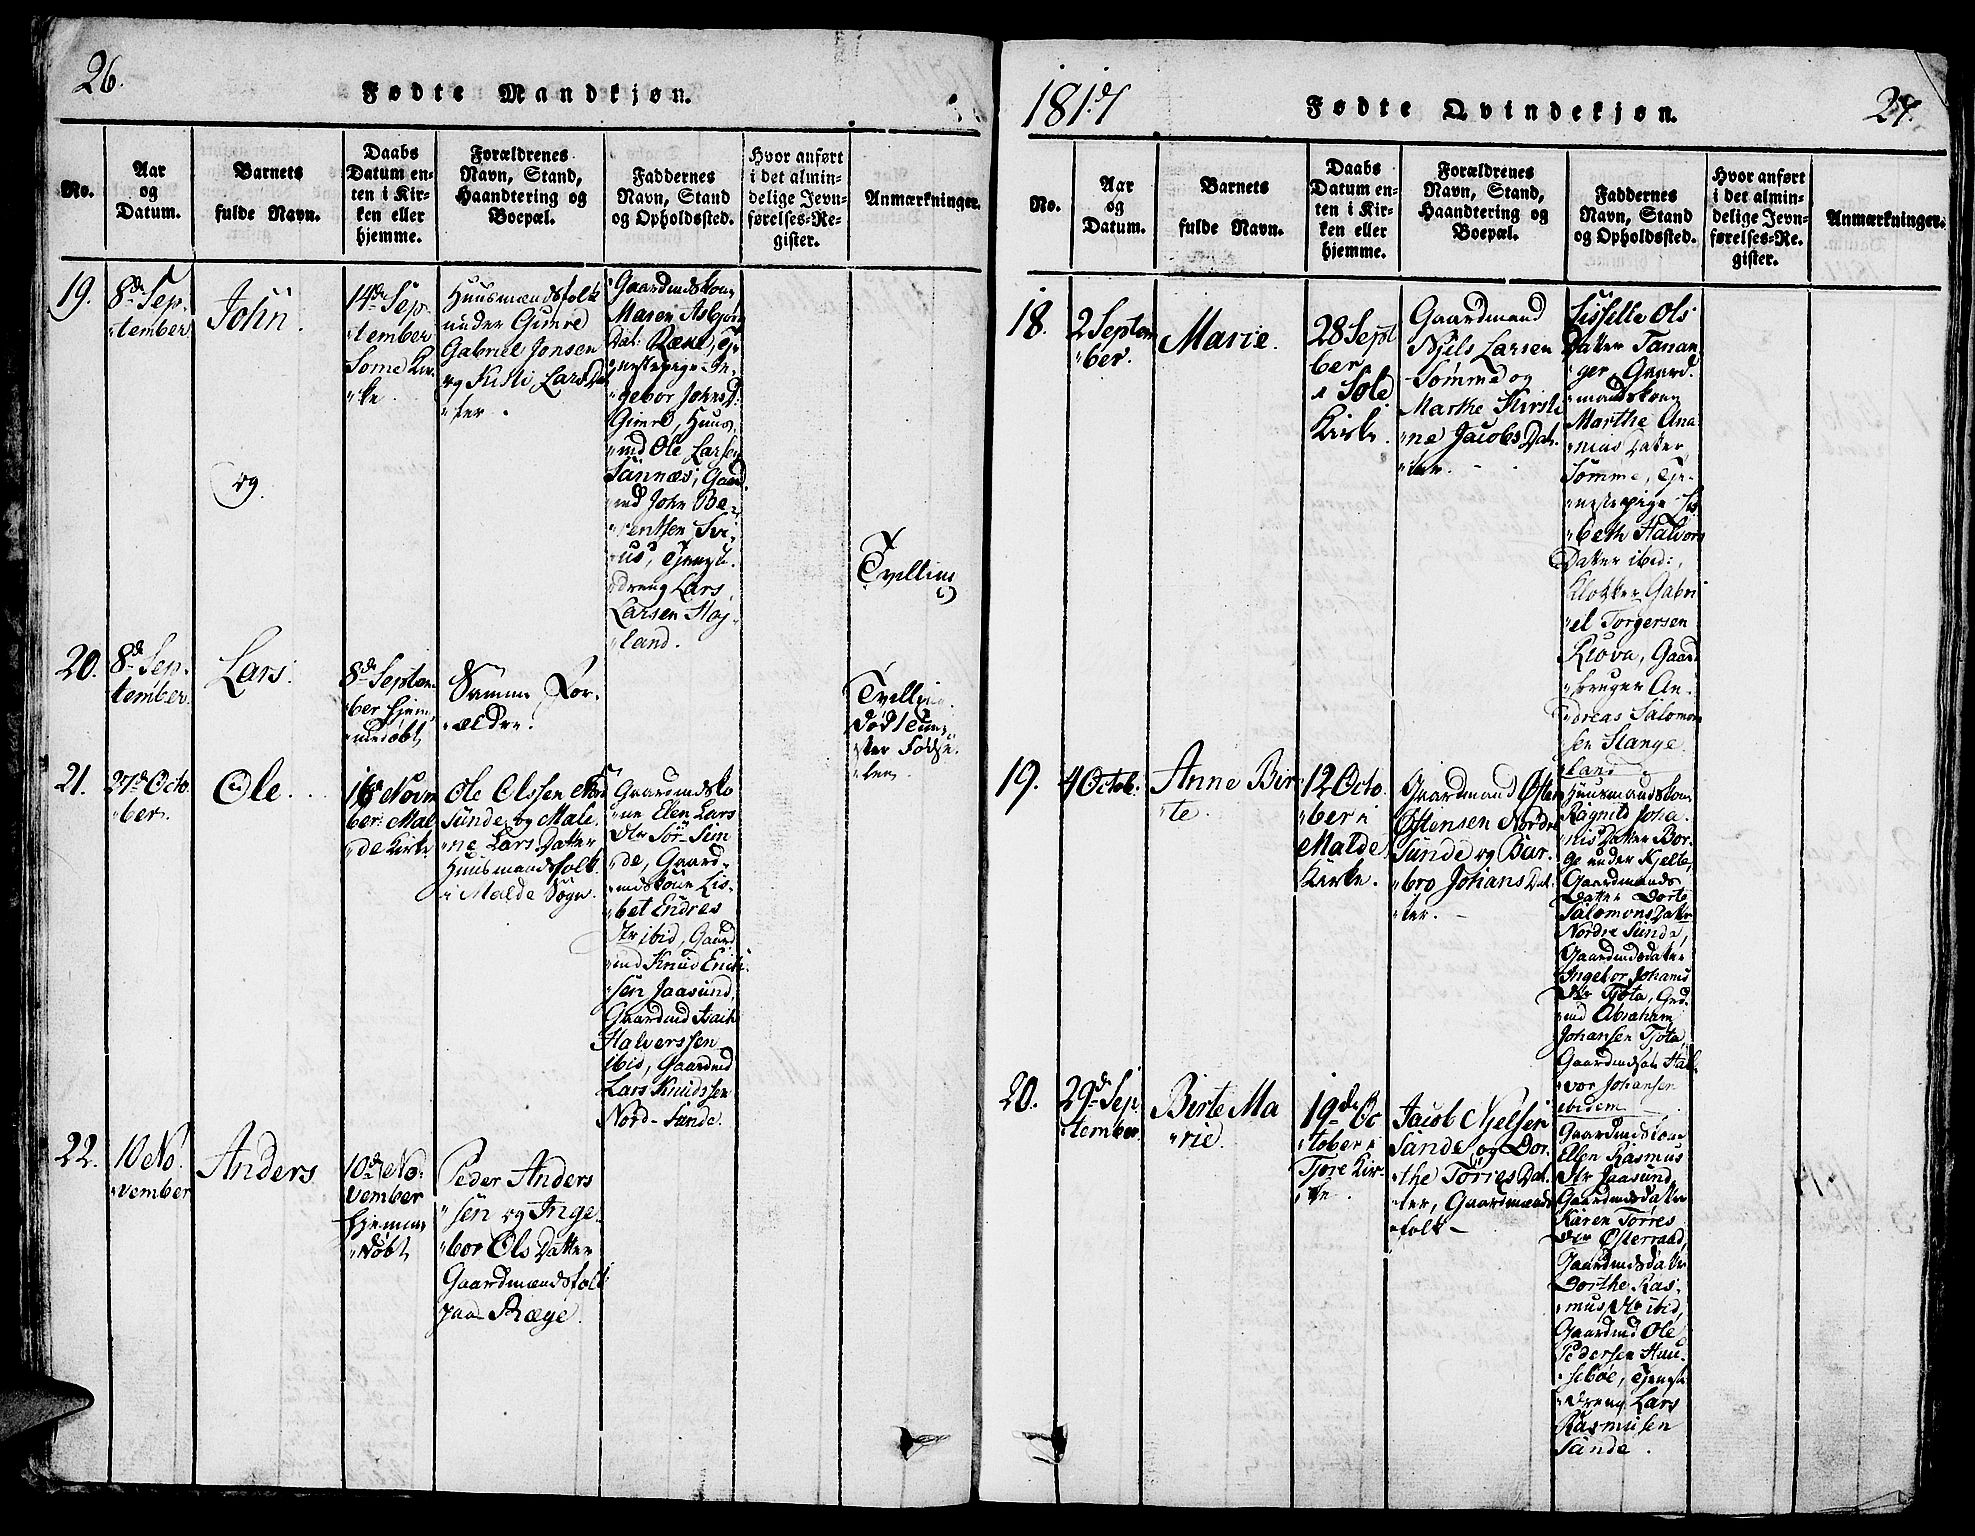 26.
Fødte Mandkjøn.
No.
Aar
og
Datum.
Barnets
fulde Navn.
Daabs
Datum en-
ten i Kir-
ken eller
hjemme.
Forældrenes
Navn, Stand,
Haandtering og
Boepæl.
Faddernes
Navn, Stand
og Opholdssted.
Hvor anført
i det almin-
delige Jevn-
førelses-Re-
gister.
Anmærkninger.
19.
8de Sep-
tember
John.
og
14de Sep-
tember
Some Kir-
ke
Huusmandsfolk
under Gimre
Gabriel Jonsen
og Kisti Lars Dat-
ter.
Gaardmdskone
Maren Asbjørns
Dat: Ræke, Tje-
nestepige In-
gebor Johns D:
Gimre, Huus-
md Ole Larsen
Sannæs, Gaard-
md John Be-
rentsen
Tjeneste-
dreng Lars
Larsen Haj-
land.
Tvelling
20.
8de Sep-
tember
Lars.
8de Septem-
ber hjem-
medøbt
Samme For-
ældre.
Tvelling
død
Fødse-
len.
21.
27de Octo-
ber.
Ole.
16de Novem
ber: Mal
de Kirke
Ole Olssen Nord
Sunde og Male-
ne Lars Datter
Huusmandsfolk
i Malde Sogn.
Gaardmdsko-
ne Elen Lars
Dtr Sør-Sun-
de, Gaard-
mdskone Lis-
bet Endres
Dtr ibid, Gaard
md Knud Erik-
sen Jaasund,
Gaardmd Isaik
Halverssen
ibid, Gaardmd
Lars Knudssen
Nord-Sunde.
22.
10 No-
vember
Anders
10de No-
vember
hjemme
døbt
Peder Anders
sen og Inge-
bor Ols Datter
Gaardmændsfolk
paa Ræge.
1817
Fødte Qvindekjøn.
27.
No.
Aar
og
Datum.
Barnets
fulde Navn.
Daabs
Datum en-
ten i Kir-
ken eller
hjemme.
Forældrenes
Navn, Stand,
Haandtering og
Boepæl.
Faddernes
Navn, Stand
og Opholdssted.
Hvor anført
i det almin-
delige Jevn-
førelses-Re-
gister.
Anmærkninger.
18.
2 Septem
ber.
Marie.
28 Sept
ber
i Sole
Kirke.
Gaardmand
Njels Larsen
Sømme og
Marthe Kirsti-
ne Jacobs Dat-
ter.
Sisselle Ols
Datter Tanan-
ger, Gaard-
mandskone
Marthe Ana-
nias Datter
Sømme, Tje-
nestepige Lis-
beth Halvors
Datter ibid:,
Klokker Gabri
el Torgersen
Risva, Gaard
bruger An-
dreas Salomon
sen Stange-
land
19.
4 Octob:
Anne Bir
te.
12 Octo-
ber i
Malde
Kirke.
Gaardmand Østen
Østensen Nordre
Sunde og Bar-
bro Johans Dat-
ter.
Huusmandskone
Ragnild Joha-
nis Datter Bor-
ge under Kjelte,
Gaardmands
Datter Dorte
Salomons Datter
Nordre Sunde,
Gaardmdsdatter
Ingebor Johans
Dtr Tjota, Grd-
md Abraham
Johansen Tjota,
Gaardmdsøn Hal-
vor Johansen
ibidem
20.
29de Sep
tember
Birte Ma
rie.
19de Oc
tober i
Tjore Kir-
ke.
Jacob Njelsen
Sunde og Dor-
the Tørres Dat-
ter, Gaardmænds
folk
Gaardmdskone
Ellen Rasmus
Dtr Jaasund,
Gaardmdsdatter
Karen Tørres
Dtr Østerraad,
Gaardmdsdatter
Dorthe Ras-
mus Dtr ibid,
Gaardmd Ole
Pedersen Huu-
sebøe, Tjeneste-
dreng Lars
Rasmusen
Sunde.